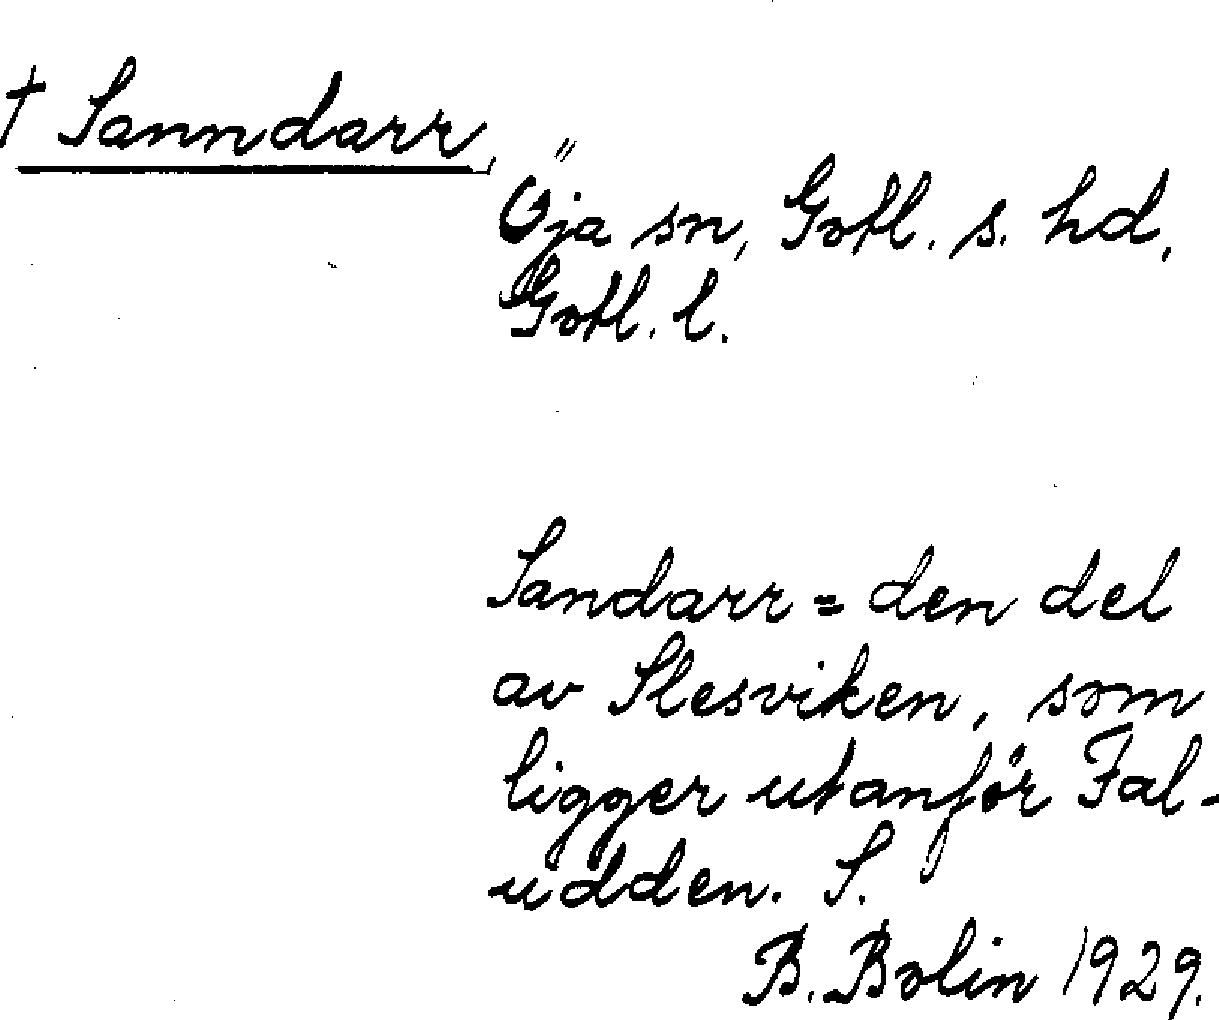 † Sanndarr,
Öja sn, Gotl. s. hd,
Gotl. l.
Sandarr = den del
av Slesviken, som
ligger utanför Fal-
udden. S.
B. Bolin 1929.